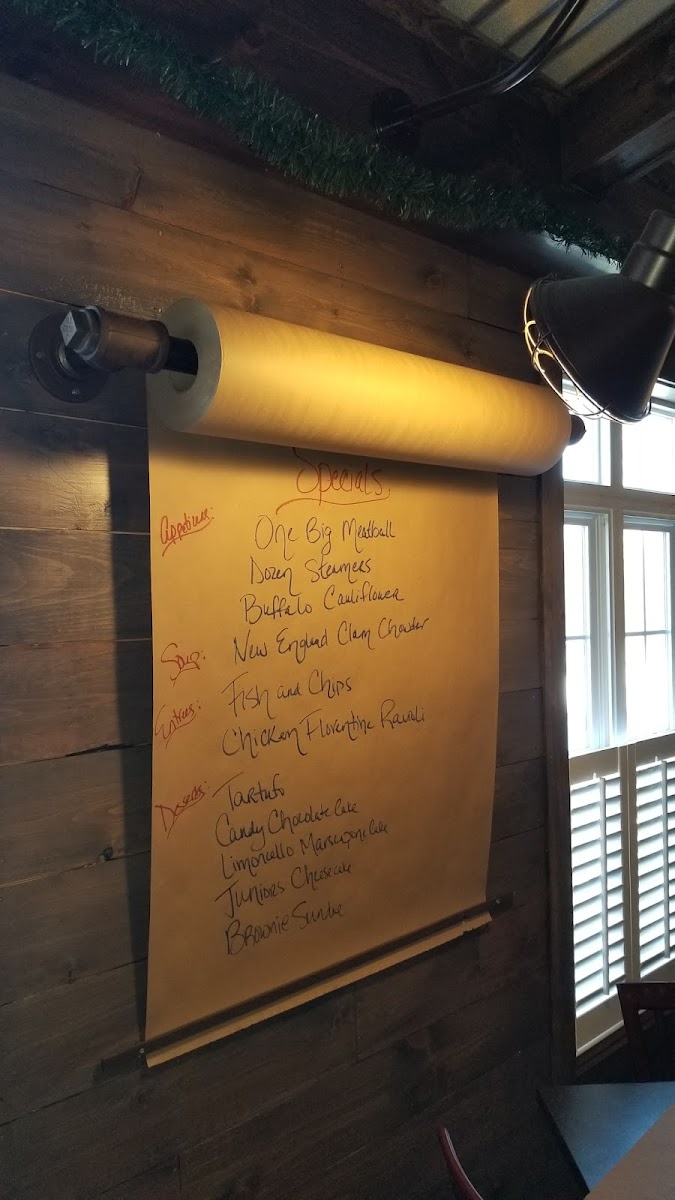 Specials
Appetizers:
One Big Meatball
Dozen Steamers
Buffalo Cauliflower
Soup:
New England Clam Chowder
Entrees:
Fish and Chips
Chicken Florentine Ravioli
Desserts:
Tartufo
Candy Chocolate Cake
Limoncello Marscapone Cake
Juniors Cheesecake
Brownie Sundae